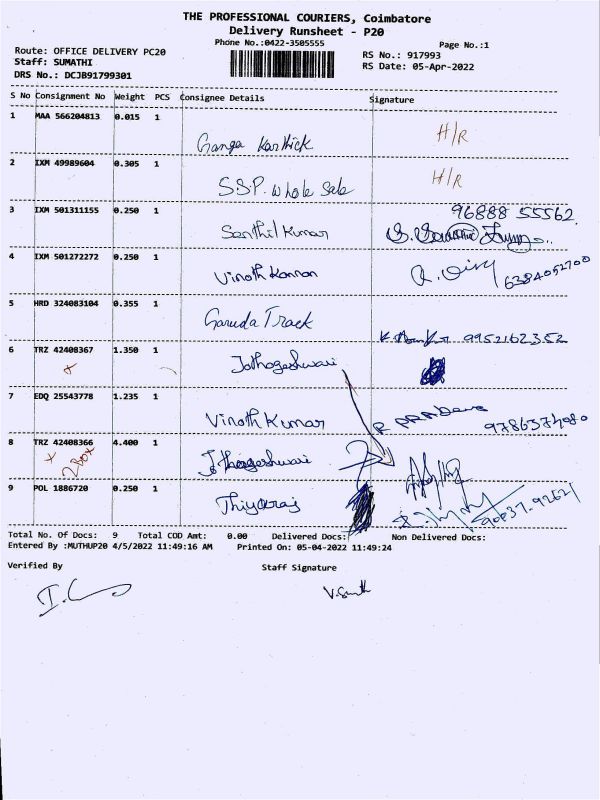 THE PROFESSIONAL COURIERS, Coimbatore
Delivery Runsheet - P20
Phone No.:0422-3505555
Page No.:1
Route: OFFICE DELIVERY PC20
RS No.: 917993
Staff: SUMATHI
RS Date: 05-Apr-2022
DRS No.: DCJB91799301
S No Consignment No Weight PCS Consignee Details Signature
1 MAA 566204813 0.015 1
Ganga Karthick H/R
2 IXM 49989604 0.305 1
S.S.P. Whole Sale H/R
3 IXM 501311155 0.250 1 96888 55562
Senthil Kumar
4 IXM 501272272 0.250 1
Vinoth Kannan 6384052700
5 HRD 324083104 0.355 1
Garuda Track 9952162352
6 TRZ 42408367 1.350 1
x Jothageshwari
7 EDQ 25543778 1.235 1
Vinoth Kumar 9786374980
8 TRZ 42408366 4.400 1
x 2 BOX Jothageshwari
9 POL 1886720 0.250 1
Thiyaraj
Total No. Of Docs: 9 Total COD Amt: 0.00 Delivered Docs: Non Delivered Docs:
Entered By :MUTHUP20 4/5/2022 11:49:16 AM Printed On: 05-04-2022 11:49:24
Verified By Staff Signature